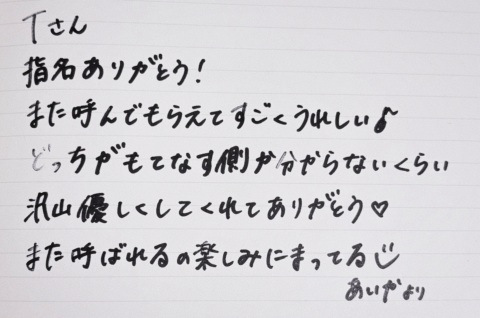 Tさん
指名ありがとう!
また呼んでもらえてすごくうれしい♪
どっちがもてなす側か分からないくらい
沢山優しくしてくれてありがとう♡
また呼ばれるの楽しみにまってる
あいかより